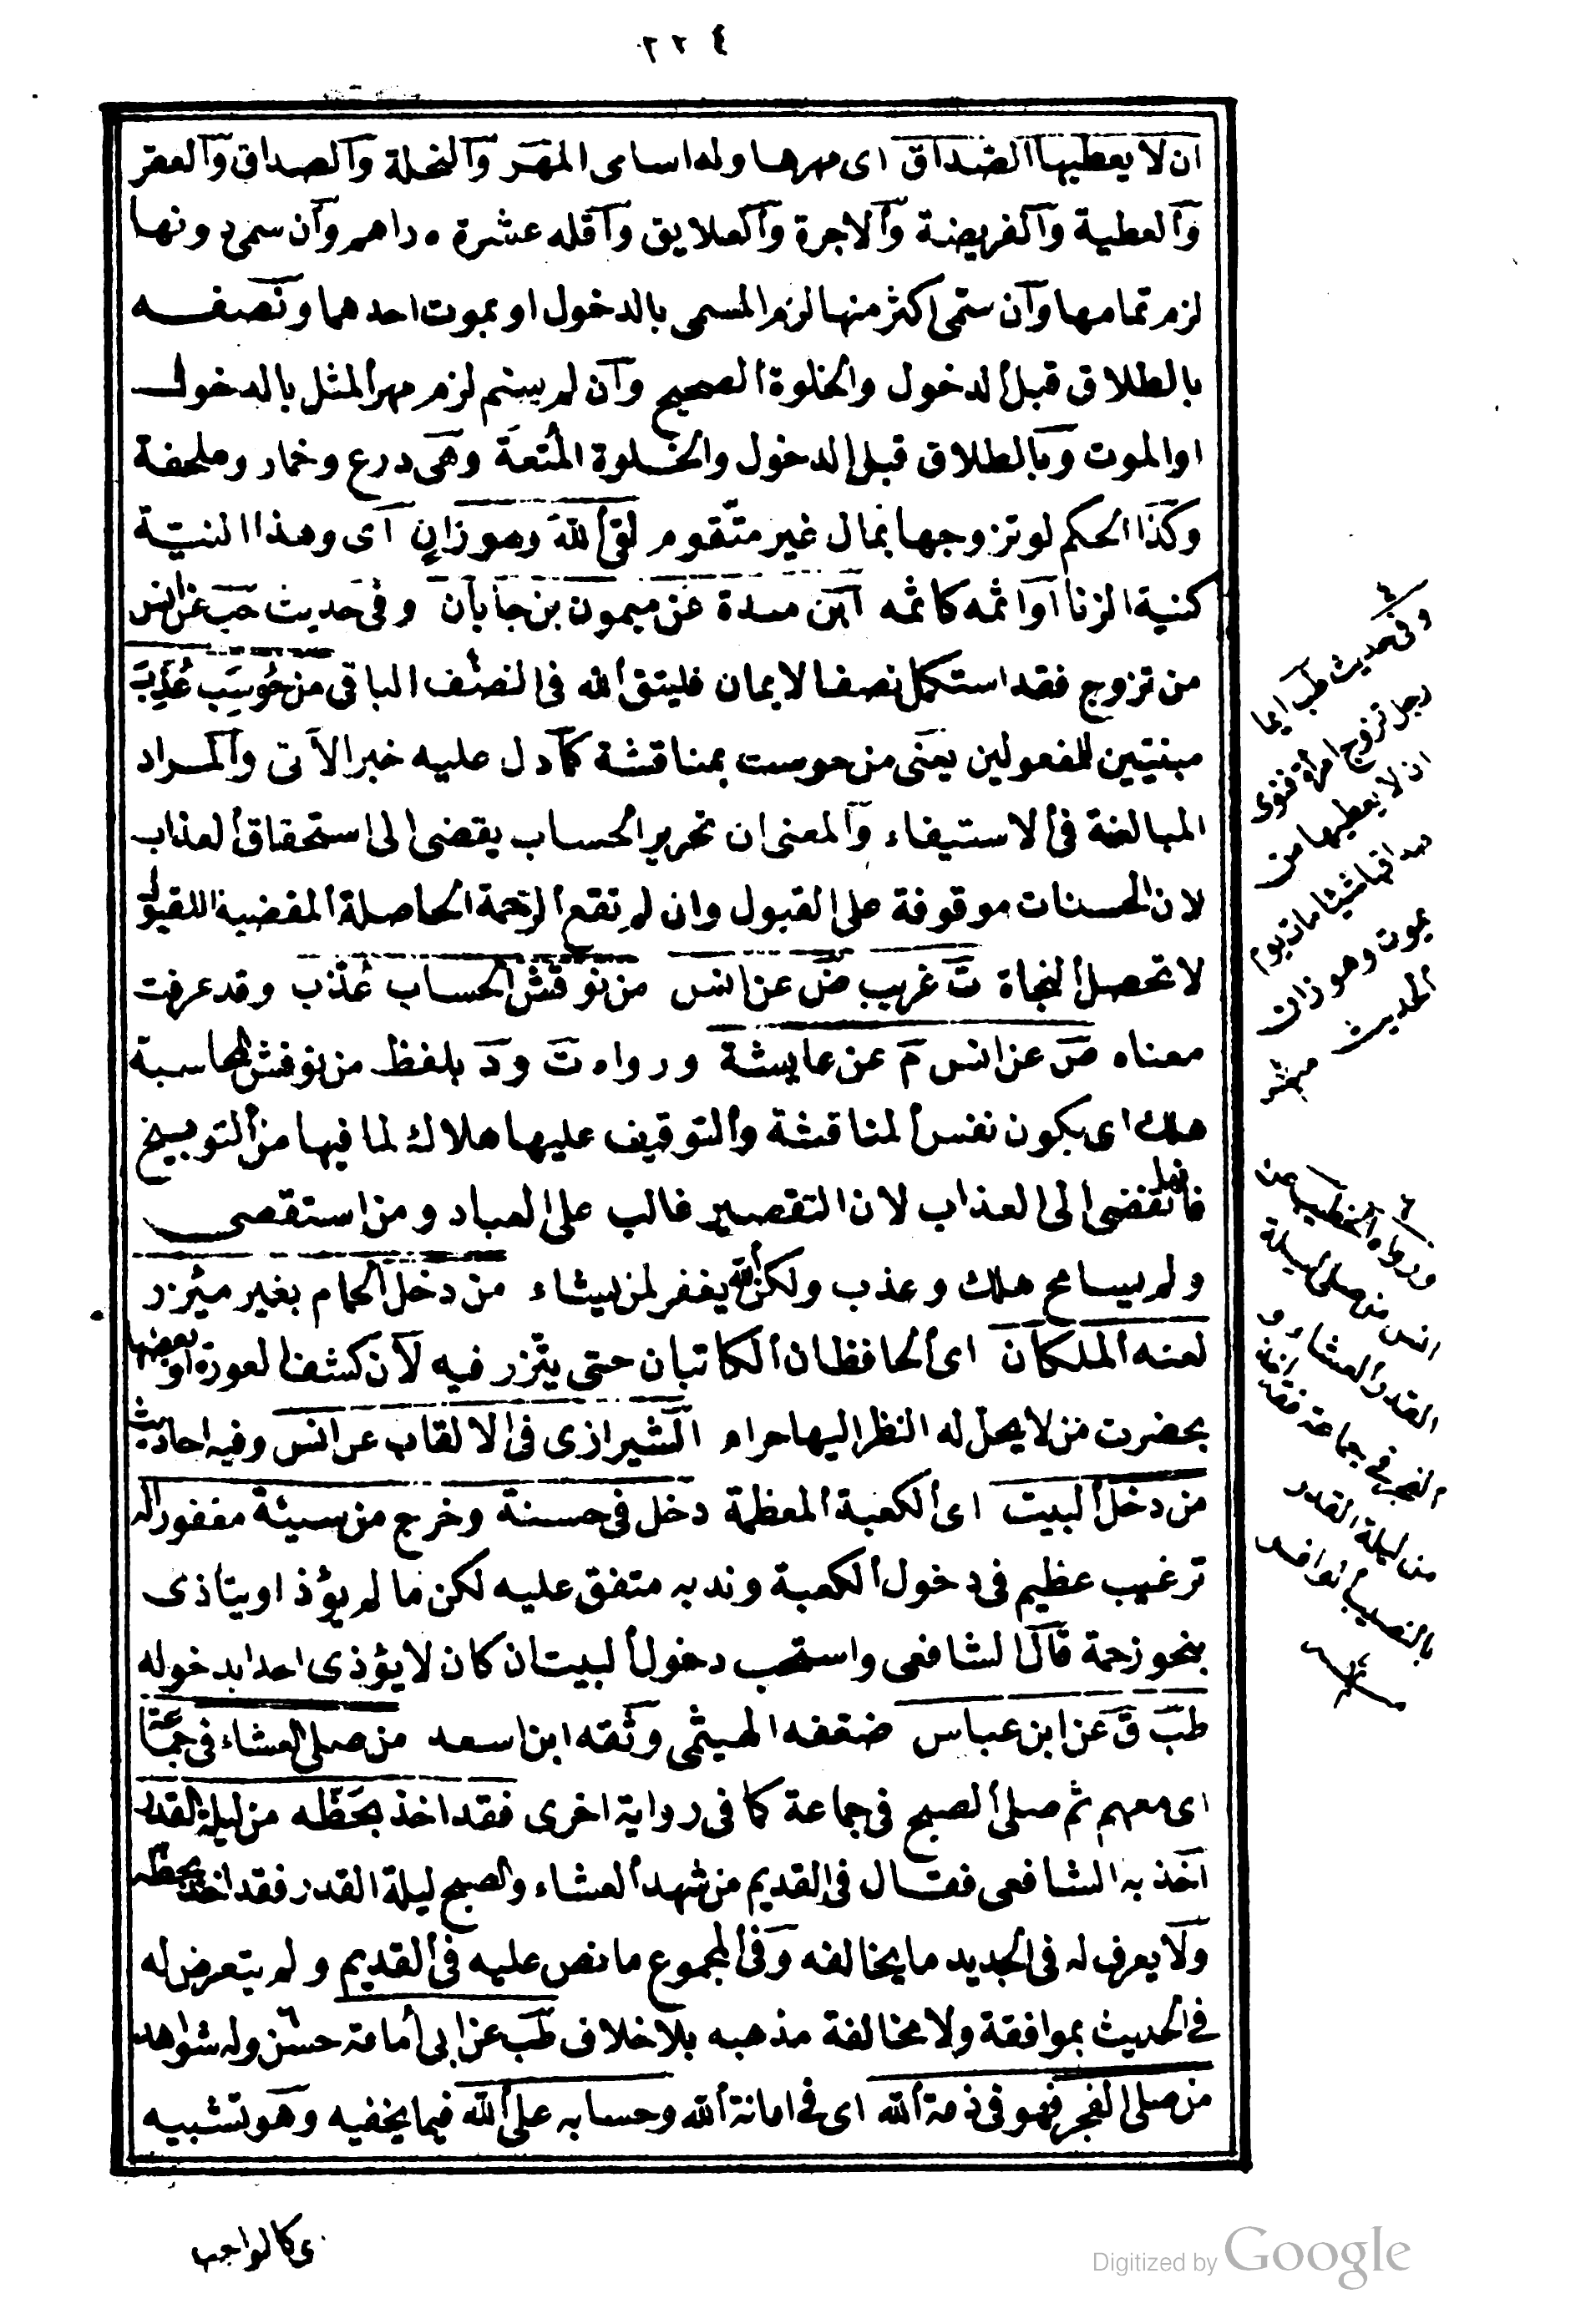 ٢٢٤
ان لا يعطيها الصداق اى مهرها وله اسامى المهر والنحلة والصداق والعقر
والعطية والفريضة والاجرة والعلايق واقله عشرة دراهم وان سمى دونها
لزم تمامها وان سمى اكثر منها لزم المسمى بالدخول او بموت احدهما ونصفه
بالطلاق قبل الدخول والخلوة الصحيح وان لم يسم لزم مهر المثل بالدخول
او الموت وبالطلاق قبل الدخول والخلوة المتعة وهى درع وخمار وملحفة
وكذا الحكم لو تزوجها بمال غير متقوم لقى الله وهو زان اى وهذا النية
كنية الزنا او اثمه كاثمه ابن مندة عن ميمون بن جابان وفى حديث حب عن انس
من تزوج فقد استكمل نصف الايمان فليتق الله فى النصف الباقى من حوسب عذب
مبنيين للمفعولين يعنى من حوست بمناقشة كما دل عليه خبر الآتى والمراد
المبالغة فى الاستيفاء والمعنى ان تحرير الحساب يقضى الى استحقاق العذاب
لان الحسنات موقوفة على القبول وان لم تقع الرحمة الحاصلة المفضية للقبول
لا تحصل النجاة ت غريب ض عن انس من نوقش الحساب عذب وقد عرفت
معناه ض عن انس م عن عايشة ورواه ت ود بلفظ من نوقش المحاسبة
هلك اى يكون نفس المناقشة والتوقيف عليها هلاك لما فيها من التوبيخ
فانها تفضى الى العذاب لان التقصير غالب على العباد ومن استقصى
ولم يسامح هلك وعذب ولكن الله يغفر لمن يشاء من دخل الحمام بغير ميزر
لعنه الملكان اى الحافظان الكاتبان حتى يتزر فيه لان كشف العورة او بعضها
بحضرت من لا يحل له النظر اليها حرام الشيرازى فى الالقاب عن انس وفيه احاديث
من دخل البيت اى الكعبة المعظمة دخل فى حسنة وخرج من سيئة مغفورا له
ترغيب عظيم فى دخول الكعبة وندبه متفق عليه لكن ما لم يؤذ او يتاذى
بنحو زحمة قال الشافعى واستحب دخول البيت ان كان لا يؤذى احدا بدخوله
طب ق عن ابن عباس ضعفه الهيثمى وثقه ابن اسعد من صلى العشاء فى جماعة
اى معهم ثم صلى الصبح فى جماعة كما فى رواية اخرى فقد اخذ بحظه من ليلة القدر
اخذ به الشافعى فقال فى القديم من شهد العشاء والصبح ليلة القدر فقد اخذ بحظه
ولا يعرف له فى الجديد ما يخالفه وفى المجموع ما نص عليه فى القديم ولم يتعرض له
فى الحديث بموافقة ولا مخالفة مذهبه بلا خلاف طب عن ابى أمامة حسن وله شواهد
من صلى الفجر فهو فى ذمة الله اى فى امانة الله وحسابه على الله فيما يخفيه وهو تشبيه
وفى حديث طب ايما
رجل تزوج امرأة فنوى
ان لا يعطيها من
صداقها شيئا مات يوم
يموت وهو زان
الحديث
ورواه الخطيب عن
انس من صلى ليلة
القدر العشاء و
الفجر فى جماعة فقد اخذ
من ليلة القدر
بالنصيب الوافر
ى كالواجب
Digitized by Google